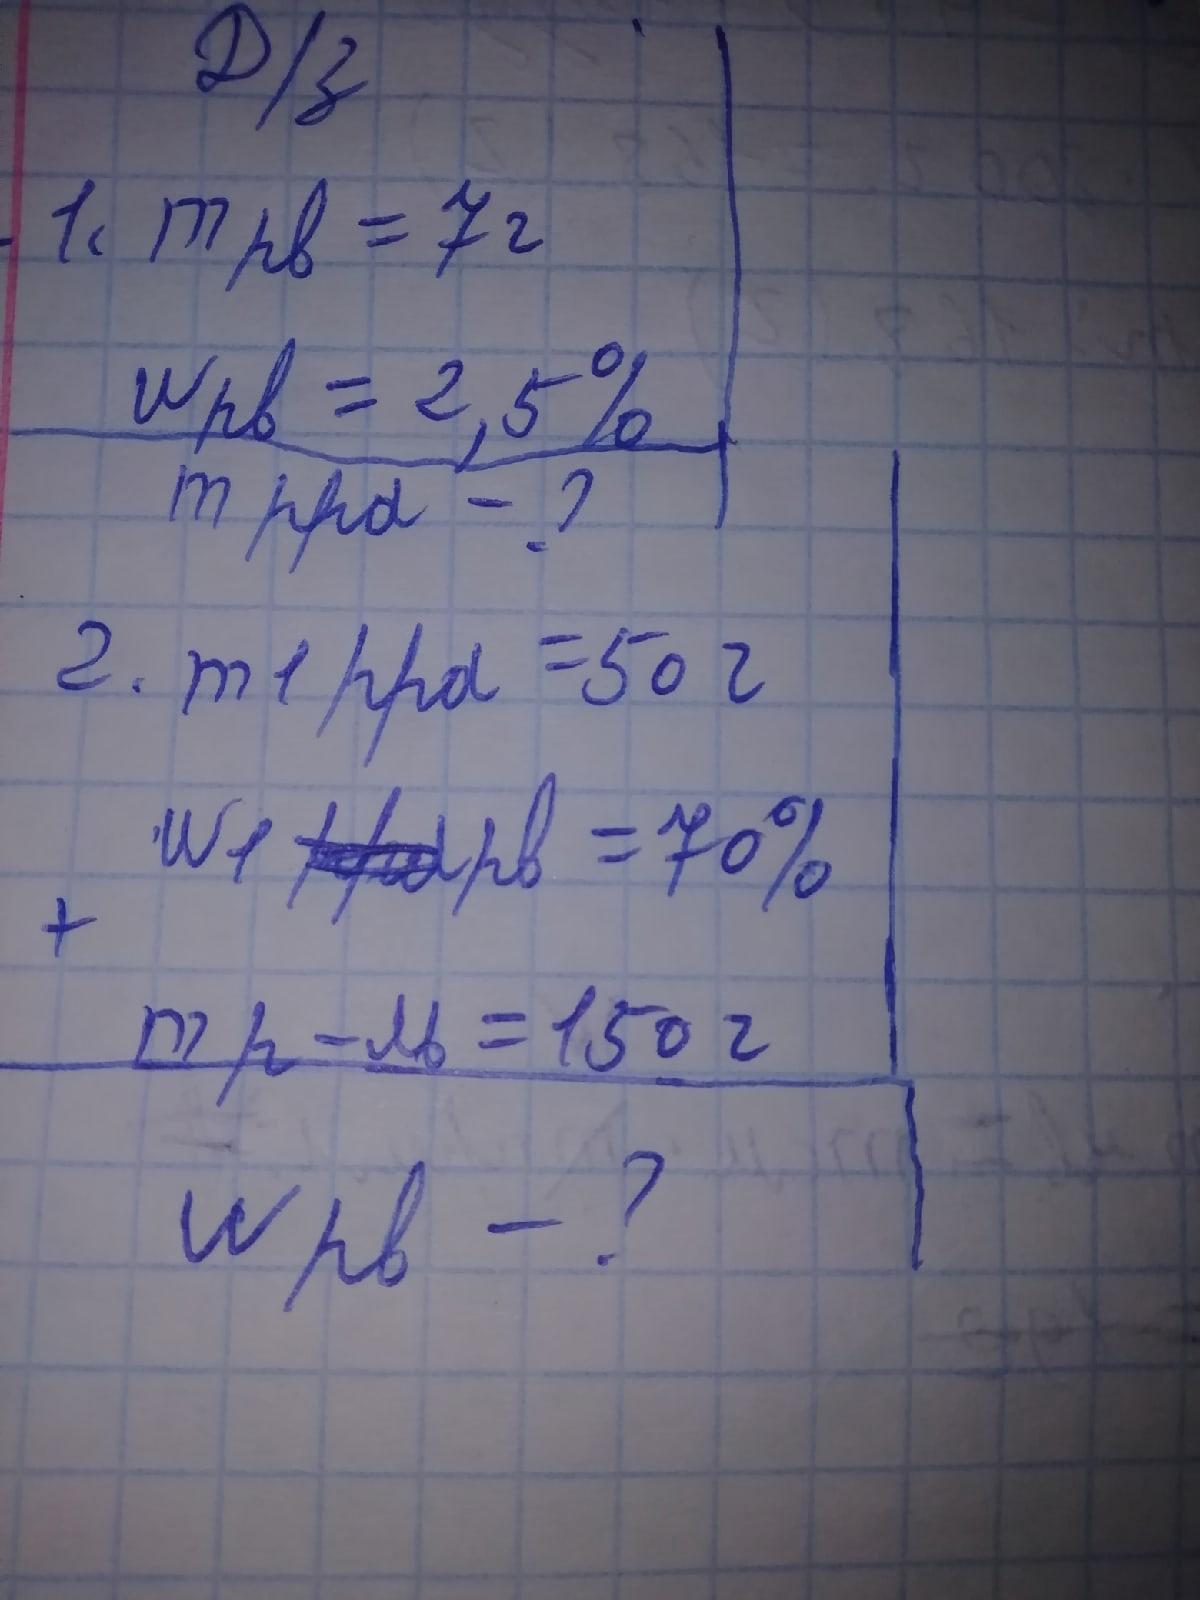 Д/з
1. m рв = 7 г
w рв = 2,5%
m рра - ?
2. m1 рра = 50 г
w1 рв = 70%
+
m р-ль = 150 г
w рв - ?